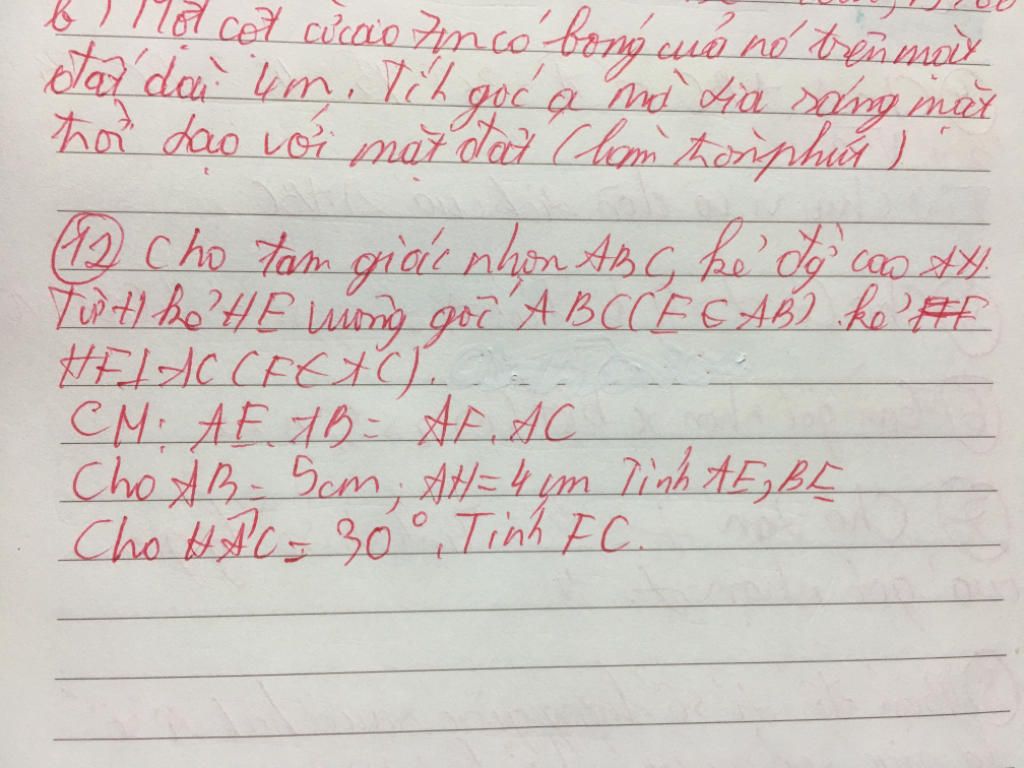 b) Một cột cờ cao 7m có bóng của nó trên mặt
đất dài 4m. Tíh góc α mà tia sáng mặt
trời tạo với mặt đất (làm tròn phút)
(12) Cho tam giác nhọn ABC, kẻ đg cao AH.
Từ H kẻ HE vuông góc ABC (E ∈ AB). kẻ
HF⊥AC (F ∈ AC).
CM: AE.AB = AF.AC
Cho AB = 5cm; AH = 4cm Tính AE, BE
Cho HAC = 30°. Tính FC.